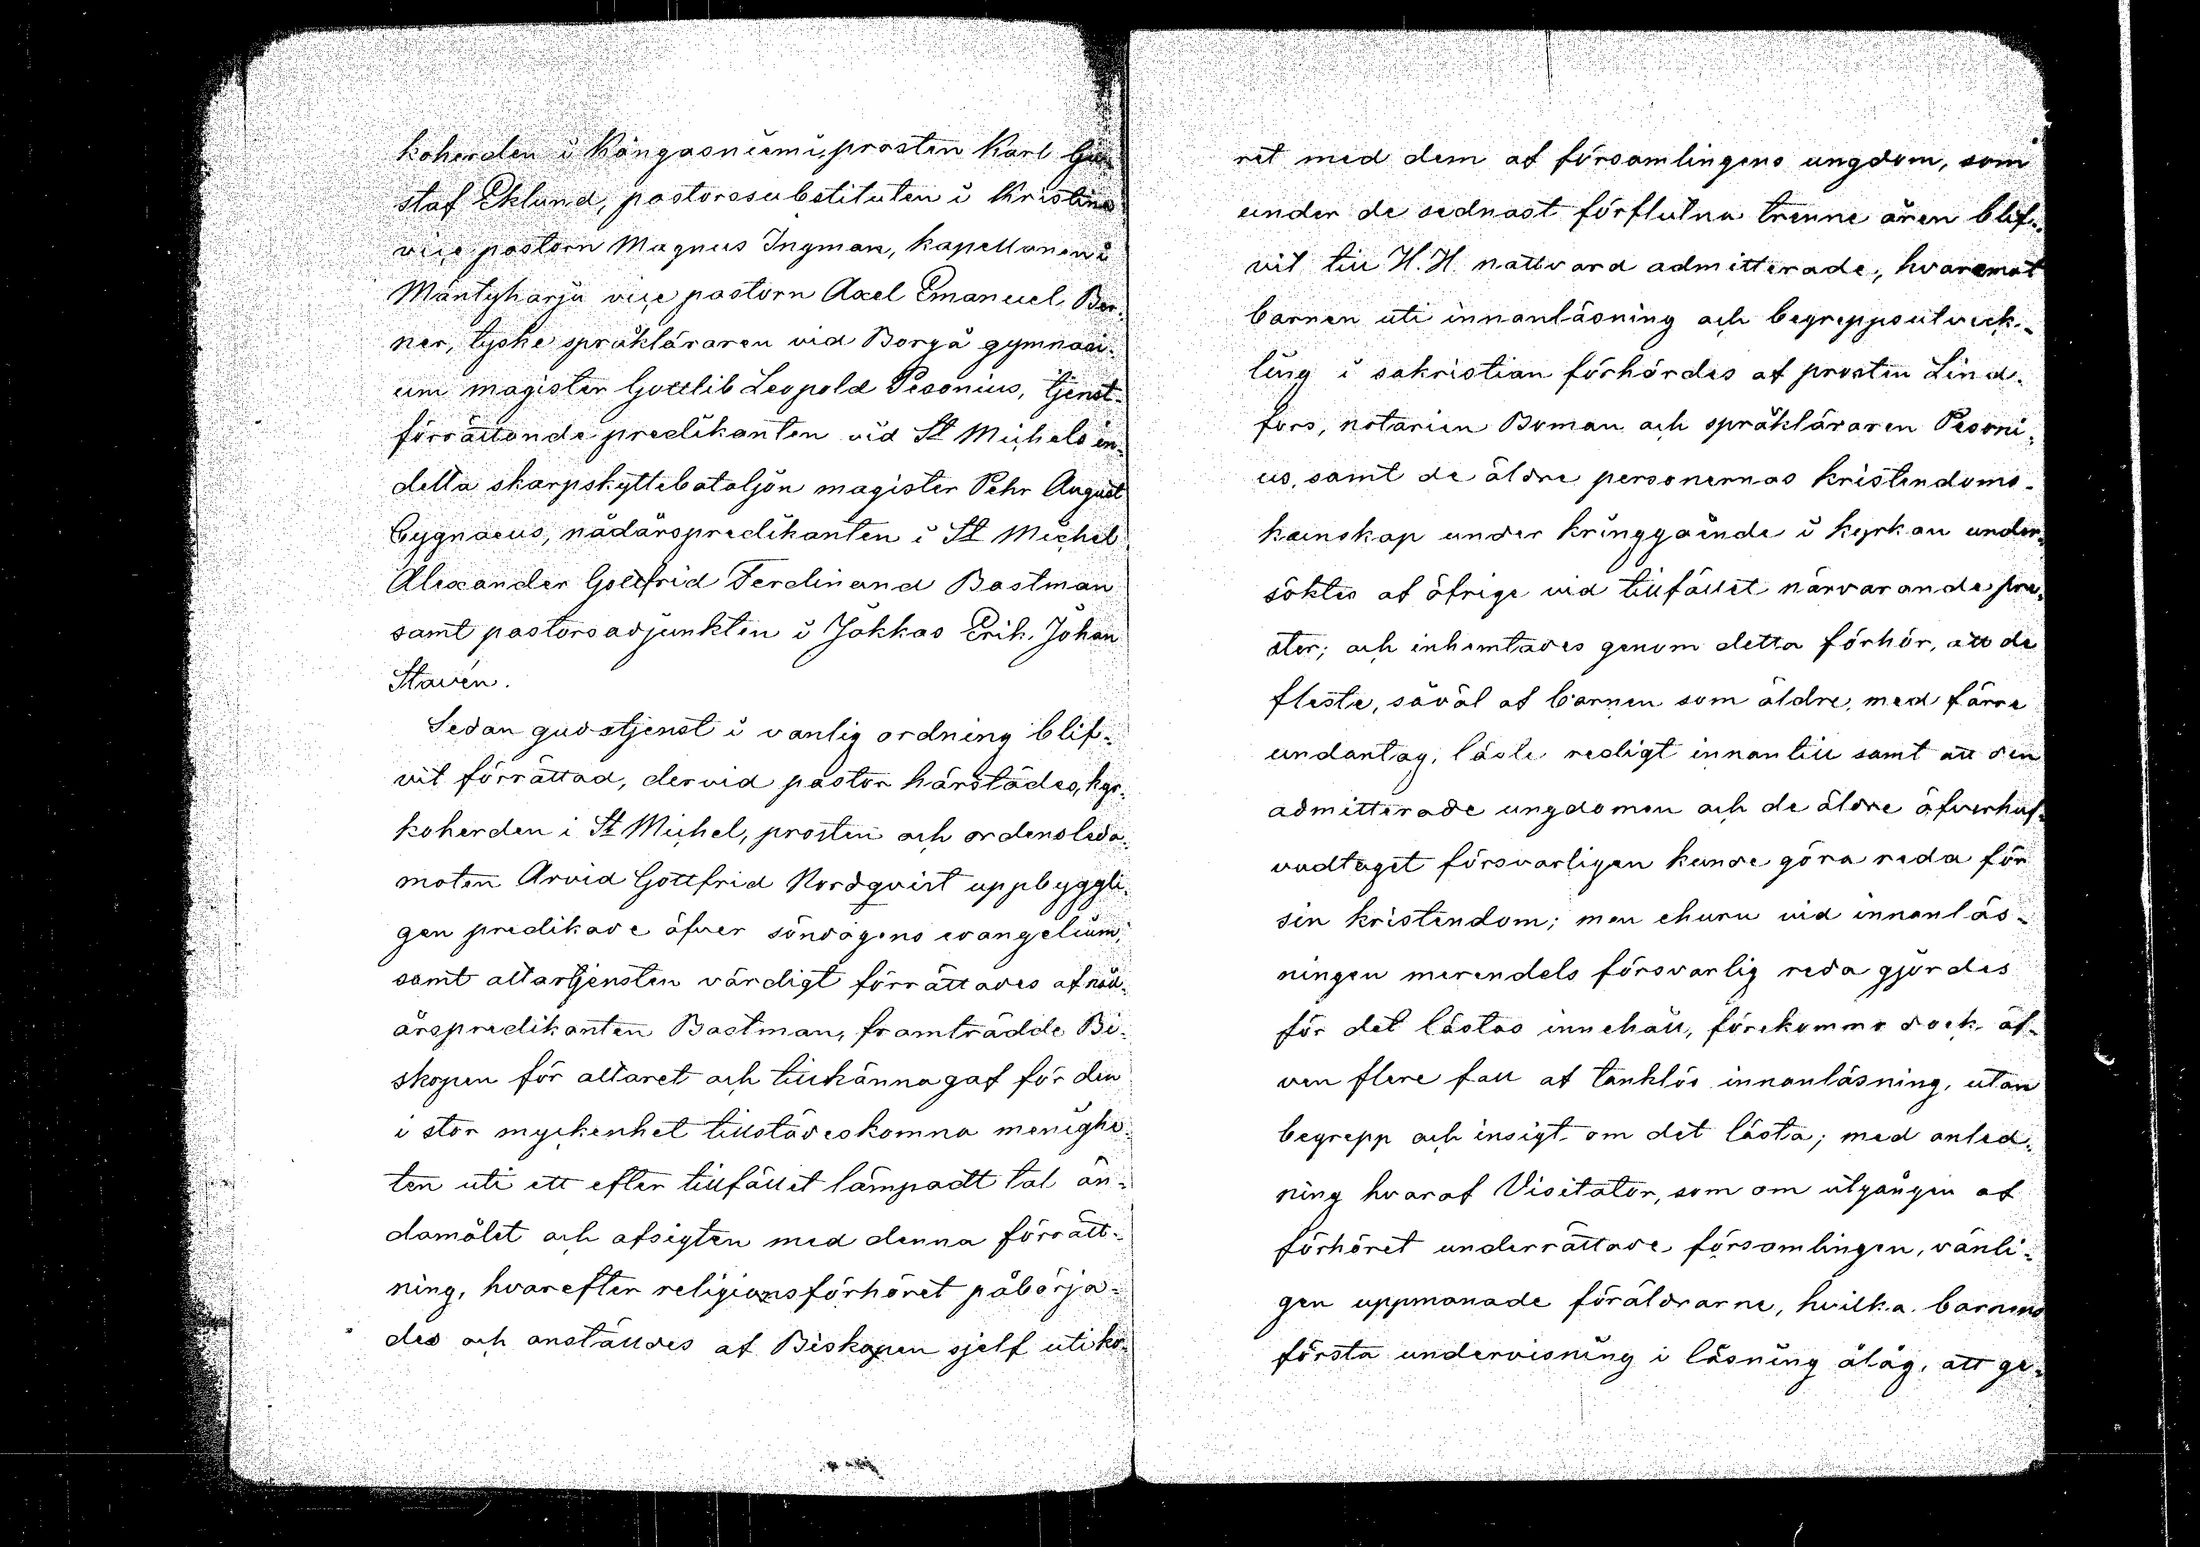 koherden i Kangasniemi, prosten Karl Gu-
staf Eklund, pastorssubstituten i Kristina
vice pastorn Magnus Ingman, kapellanen i
Mäntyharju vice pastorn Axel Emanuel Ber-
ner, tyske språkläraren vid Borgå gymnasi-
um magister Gottlib Leopold Pesonius, tjenst-
förrättande predikanten vid St Michels in-
delta skarpskyttebataljon magister Pehr August
Cygnaeus, nådårspredikanten i St Michel
Alexander Gottfrid Ferdinand Bastman
samt pastorsadjunkten i Jokkas Erik Johan
Stavén.
Sedan gudstjenst i vanlig ordning blif-
vit förrättad, dervid pastor härstädes, kyr-
koherden i St Michel, prosten och ordensleda-
moten Arvid Gottfrid Nordqvist uppbyggli-
gen predikade öfver söndagens evangelium,
samt altartjensten värdigt förrättades af nåd-
årspredikanten Bastman, framträdde Bi-
skopen för altaret och tillkännagaf för den
i stor myckenhet tillstädeskomna menighe-
ten uti ett efter tillfället lämpadt tal än-
damålet och afsigten med denna förrätt-
ning, hvarefter religionsförhöret påbörja-
des och anstäldes af Biskopen sjelf uti ko-
ret med dem af församlingens ungdom, som
under de sednast förflutna trenne åren blif-
vit till H. H. nattvard admitterade, hvaremot
barnen uti innanläsning och begreppsutveck-
ling i sakristian förhördes af prosten Lind-
fors, notarien Boman och språkläraren Pesoni-
us, samt de äldre personernas kristendoms-
kunskap under kringgående i kyrkan under-
söktes af öfrige vid tillfället närvarande pre-
ster; och inhemtades genom detta förhör, att de
fleste, såväl af barnen som äldre, med färre
undantag, läste redigt innantill samt att den
admitterade ungdomen och de äldre öfverhuf-
vudtaget försvarligen kunde göra reda för
sin kristendom; men ehuru vid innanläs-
ningen merendels försvarlig reda gjordes
för det lästas innehåll, förekommo dock äf-
ven flere fall af tanklös innanläsning, utan
begrepp och insigt om det lästa; med anled-
ning hvaraf Visitator, som om utgången af
förhöret underrättade församlingen, vänli-
gen uppmanade föräldrarne, hvilka barnens
första undervisning i läsning ålåg, att ge-